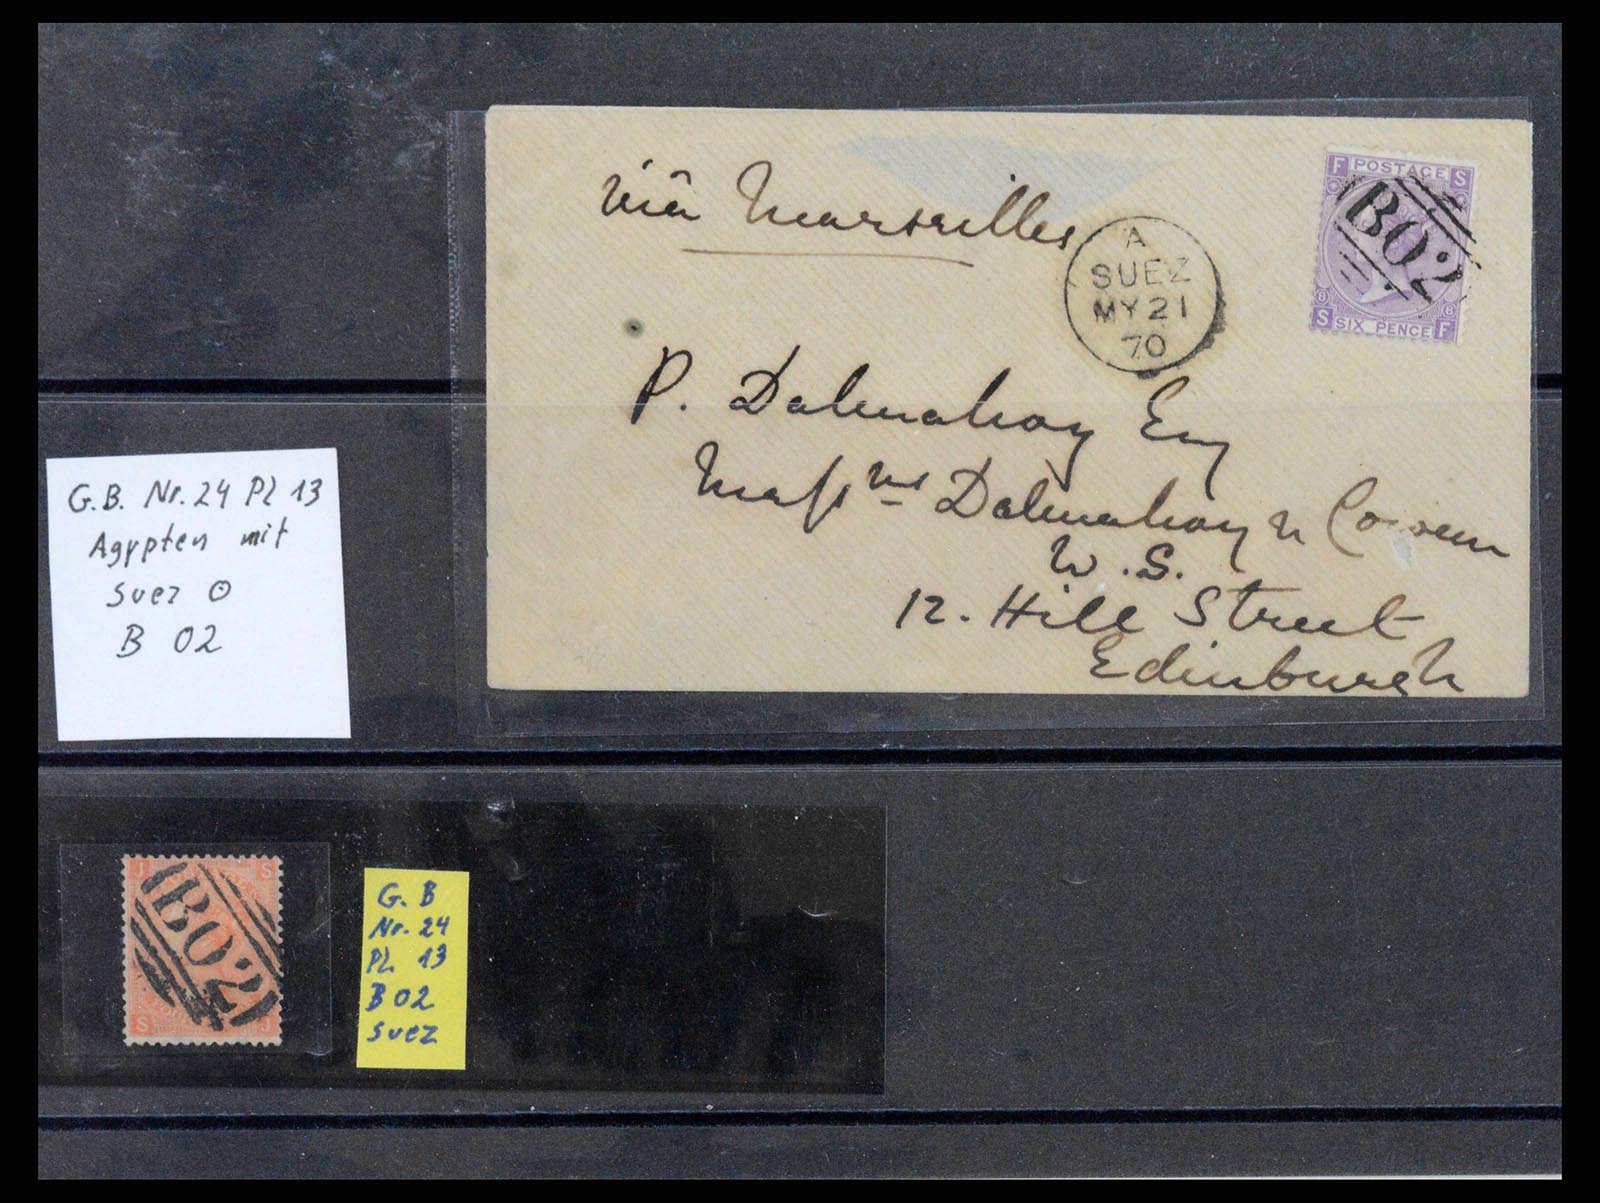 via Marseilles
A
SUEZ
MY 21
70
F POSTAGE S
B02
8 8
S SIX PENCE F
P. Dalmahoy Esq
Mess rs Dalmahoy & Cowan
W.S.
12. Hill Street
Edinburgh
G.B. Nr. 24 Pl 13
Agypten mit
Suez ⊙
B 02
J S
B02
S J
G. B
Nr. 24
Pl. 13
B 02
Suez